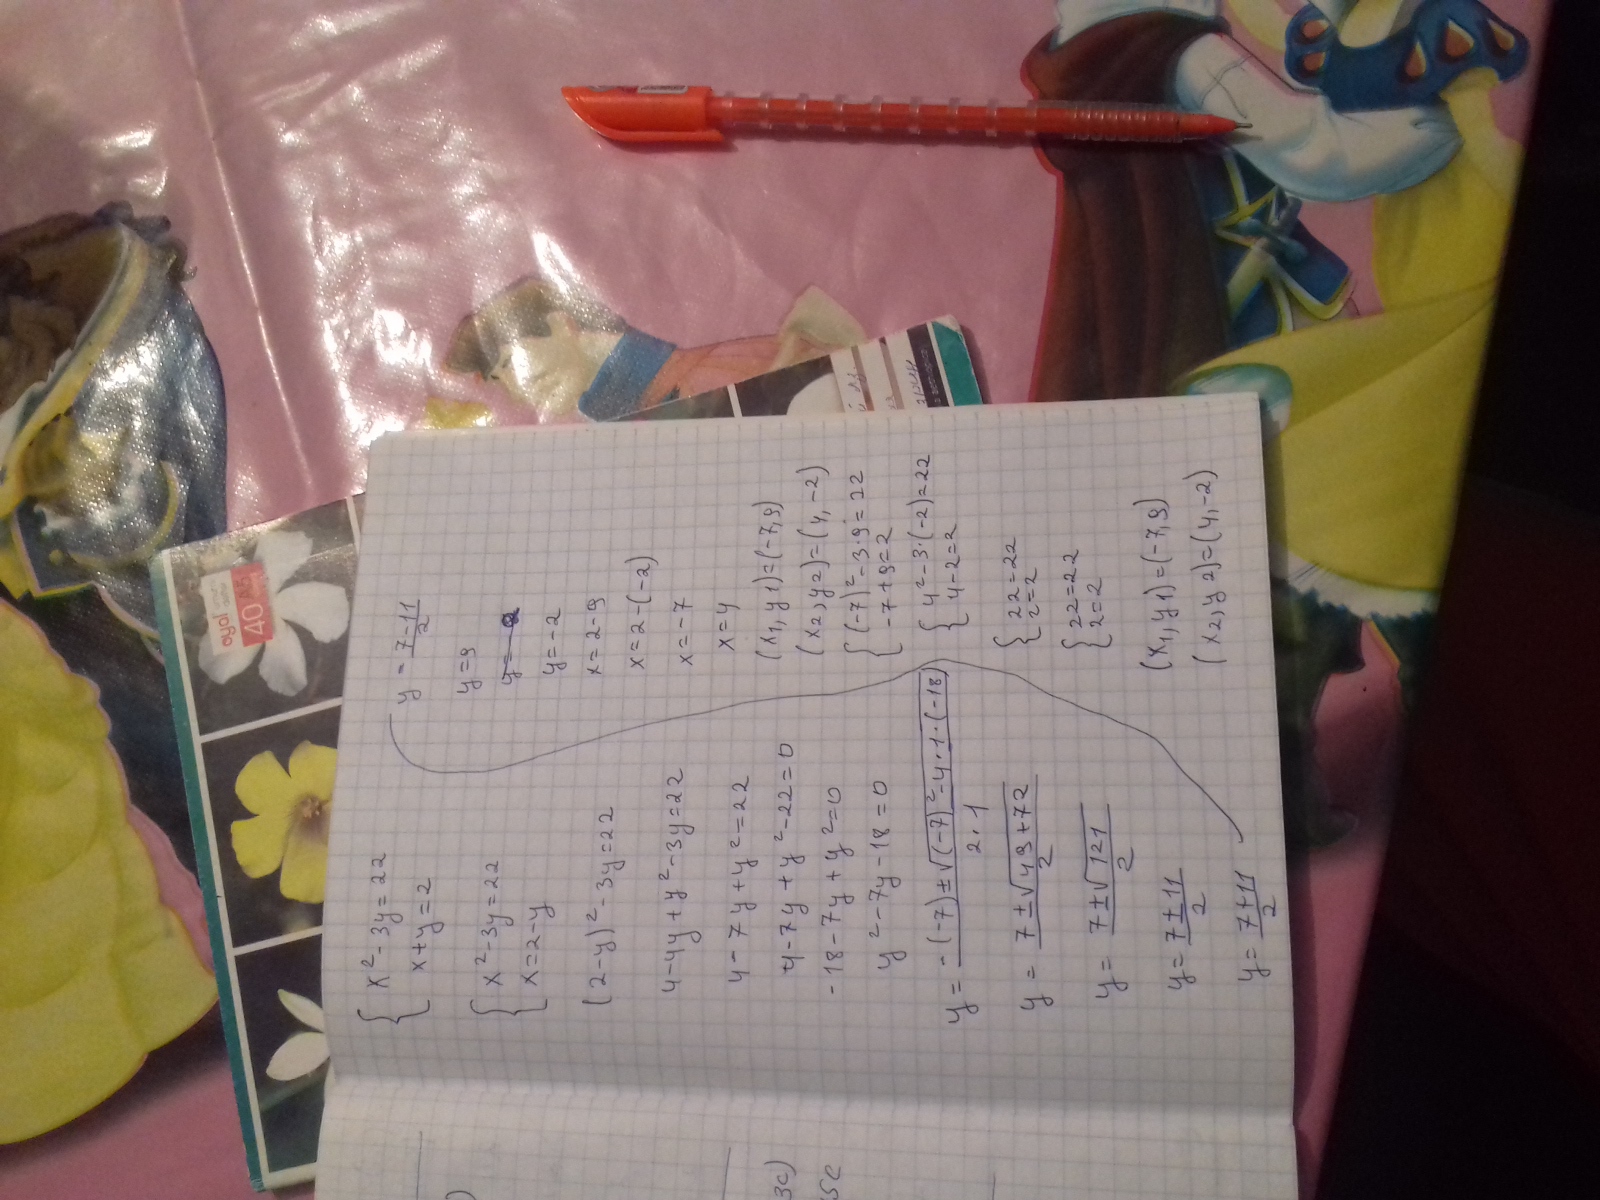 { x² - 3y = 22
x + y = 2
{ x² - 3y = 22
x = 2 - y
(2 - y)² - 3y = 22
4 - 4y + y² - 3y = 22
4 - 7y + y² = 22
4 - 7y + y² - 22 = 0
-18 - 7y + y² = 0
y² - 7y - 18 = 0
y = -(-7) ± √(-7)² - 4·1·(-18)
2·1
y = 7 ± √49 + 72
2
y = 7 ± √121
2
y = 7 ± 11
2
y = 7 + 11
2
y = 7 - 11
2
y = 9
y = -2
x = 2 - 9
x = 2 - (-2)
x = -7
x = 4
(x1, y1) = (-7, 9)
(x2, y2) = (4, -2)
{ (-7)² - 3·9 = 22
-7 + 9 = 2
{ 4² - 3·(-2) = 22
4 - 2 = 2
{ 22 = 22
2 = 2
{ 22 = 22
2 = 2
(x1, y1) = (-7, 9)
(x2, y2) = (4, -2)
oyal
40
3c)
5c